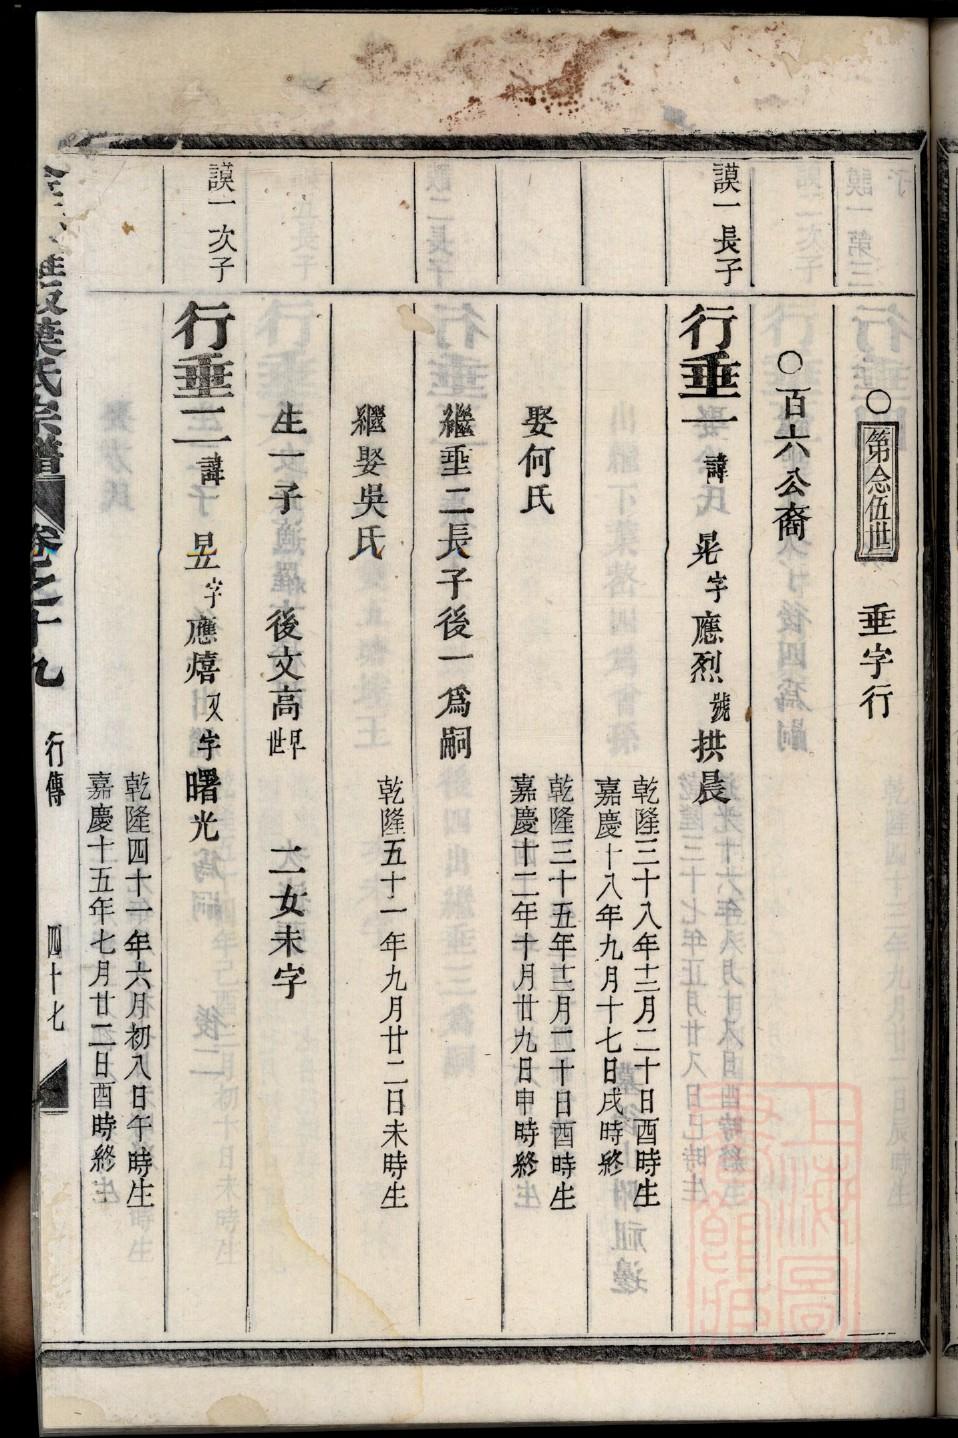 ○第念伍世　垂字行
○百六公裔
謨一長子
行垂一諱晃字應烈號拱晨
乾隆三十八年十二月二十日酉時生
嘉慶十八年九月十七日戌時終
娶何氏
乾隆三十五年十二月二十日酉時生
嘉慶十二年十月廿九日申時終
繼垂二長子後一爲嗣
繼娶吳氏
乾隆五十一年九月廿二日未時生
生一子　後文高早世　二女未字
謨一次子
行垂二諱昱字應熺又字曙光
乾隆四十一年六月初八日午時生
嘉慶十五年七月廿二日酉時終
葉氏宗譜　卷之十九　行傳　四十七